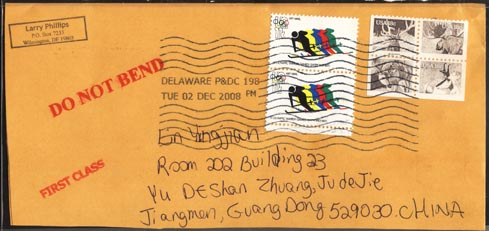 Larry Phillips
P.O. Box 7233
Wilmington, DE 19803
DO NOT BEND
FIRST CLASS
DELAWARE P&DC 198
TUE 02 DEC 2008 PM
Room 202 Building 23
Yu DEShan Zhuang, JudeJie
Jiangmen, GuangDong 529030. CHINA